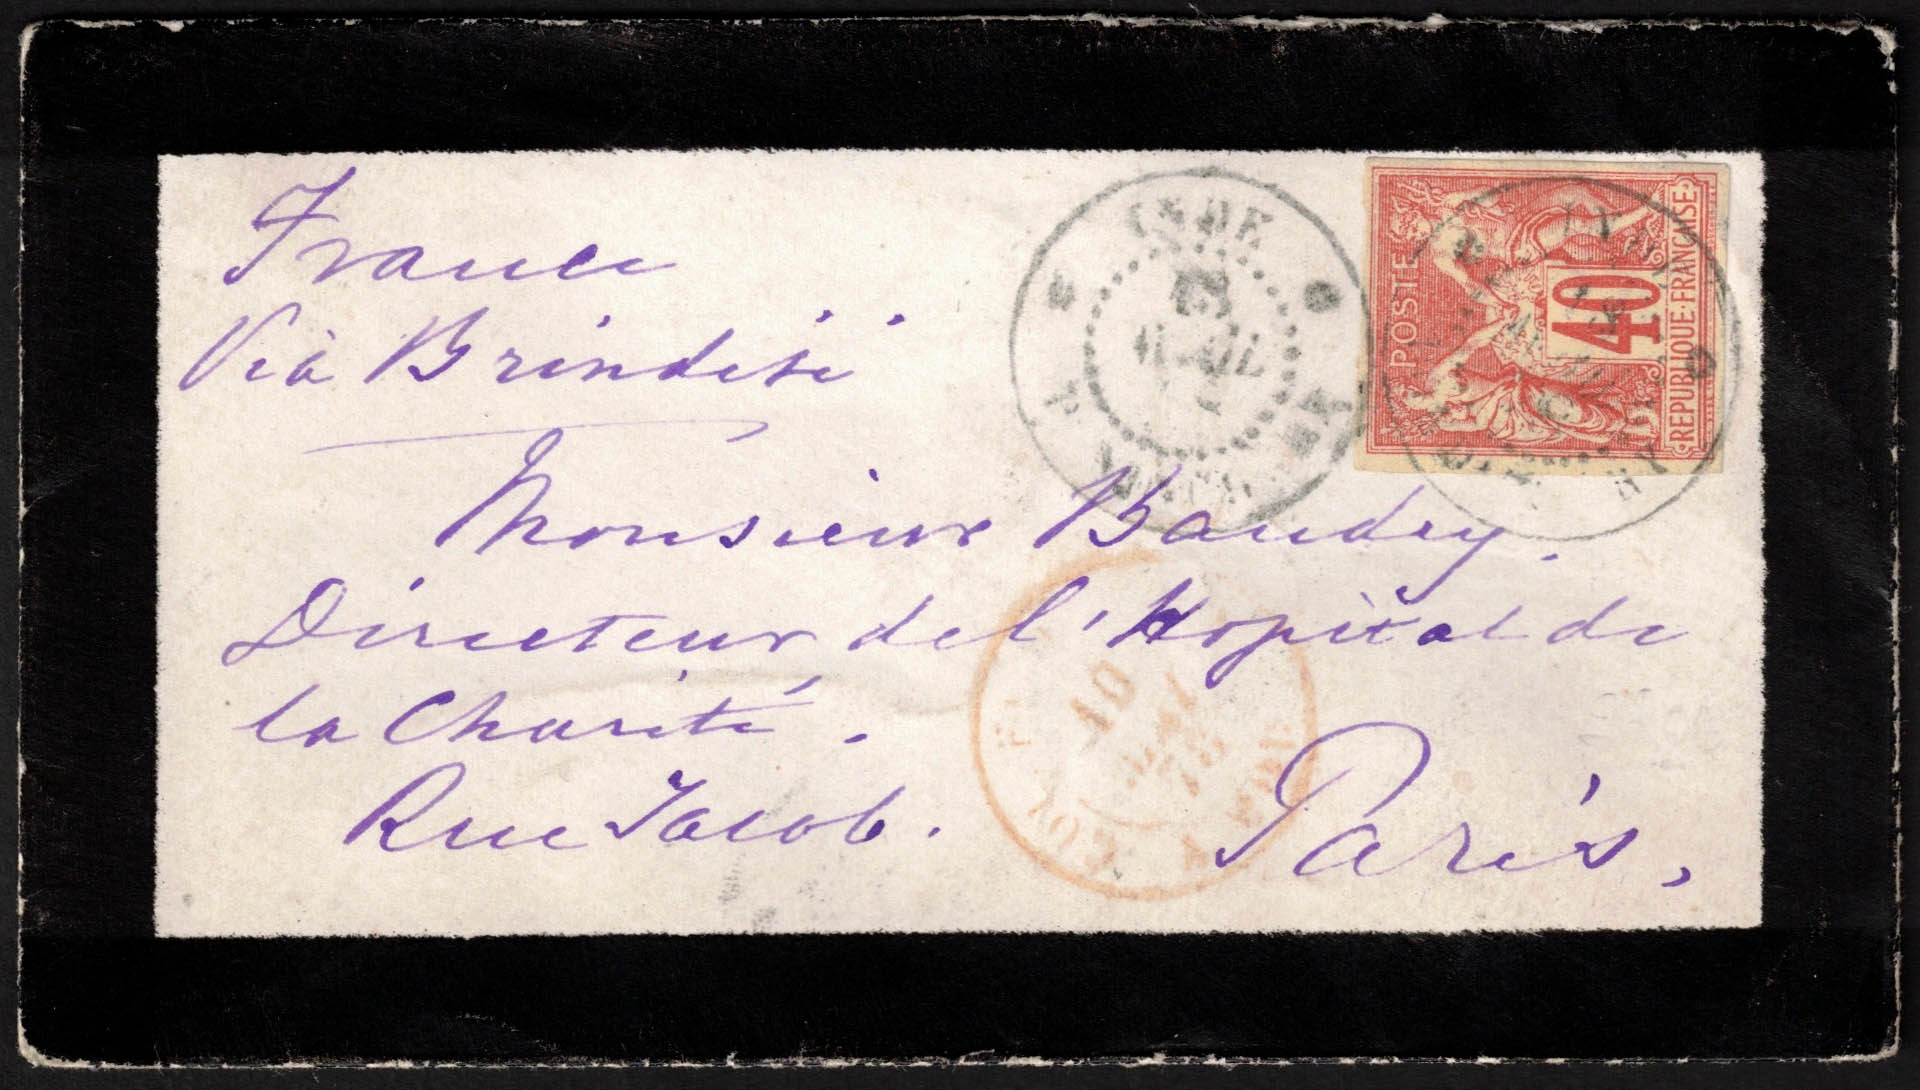 France
Via Brindisi
Monsieur Baudry.
Directeur de l'Hopital de
la Charité.
Rue Jacob.
Paris,
INDE
AVRIL
POSTES
40
REPUBLIQUE·FRANÇAISE
10
MAI
78